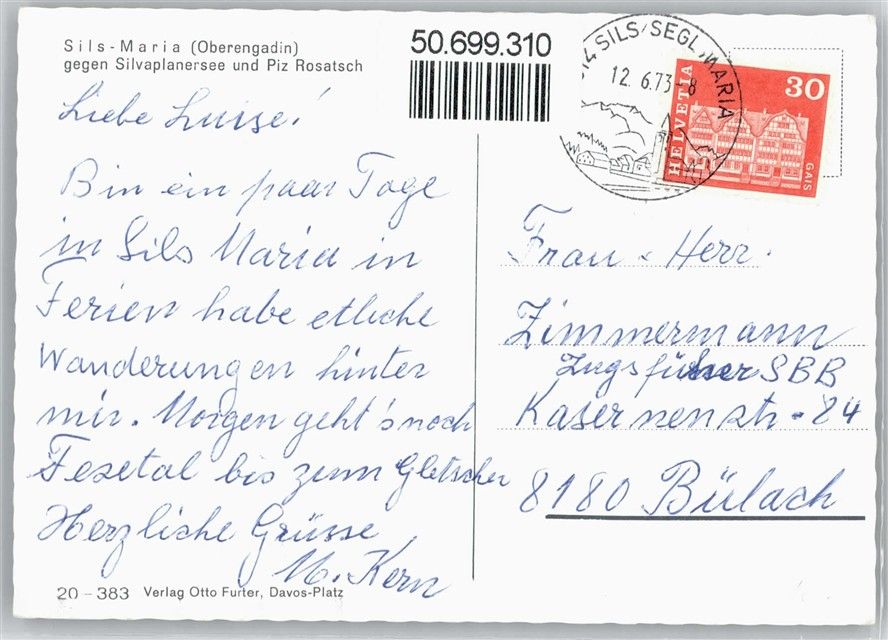 Sils-Maria (Oberengadin)
gegen Silvaplanersee und Piz Rosatsch
50.699.310
SILS/SEGL MARIA
12.6.73-8
HELVETIA
30
GAIS
Liebe Luise!
Bin ein paar Tage
in Sils Maria in
Ferien habe etliche
Wanderungen hinter
mir. Morgen geht's noch
Fexetal bis zum Gletscher
Herzliche Grüsse
M. Kern
Frau & Herr.
Zimmermann
Zugsführer SBB
Kasernenstr. 24
8180 Bülach
20-383 Verlag Otto Furter, Davos-Platz